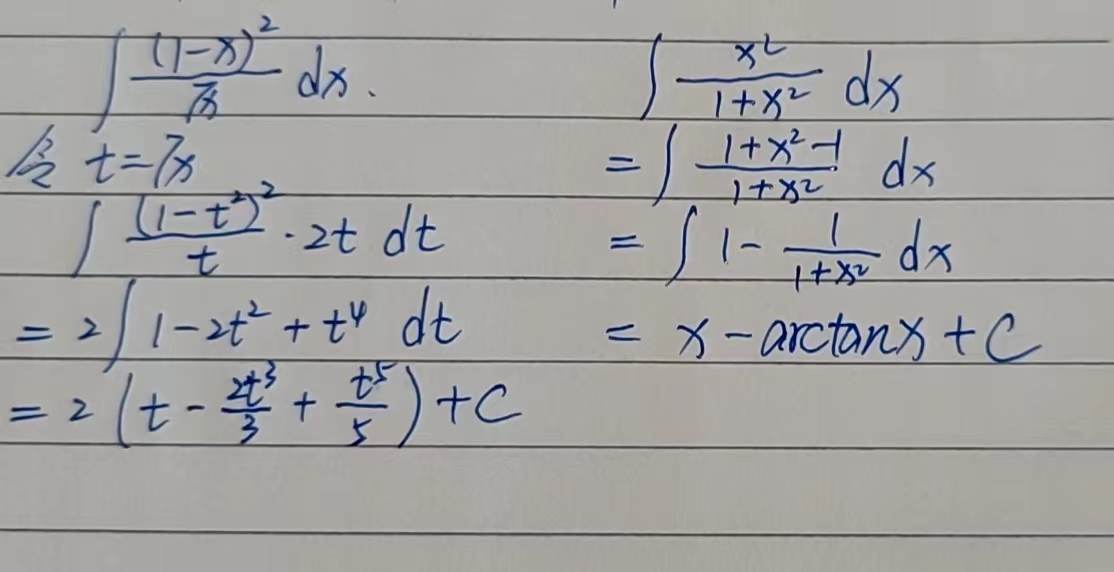 ∫ (1-x)²/√x dx.
令 t=√x
∫ (1-t²)²/t · 2t dt
= 2∫ 1-2t²+t⁴ dt
= 2(t - 2t³/3 + t⁵/5)+C
∫ x²/(1+x²) dx
= ∫ (1+x²-1)/(1+x²) dx
= ∫ 1 - 1/(1+x²) dx
= x-arctanx+C